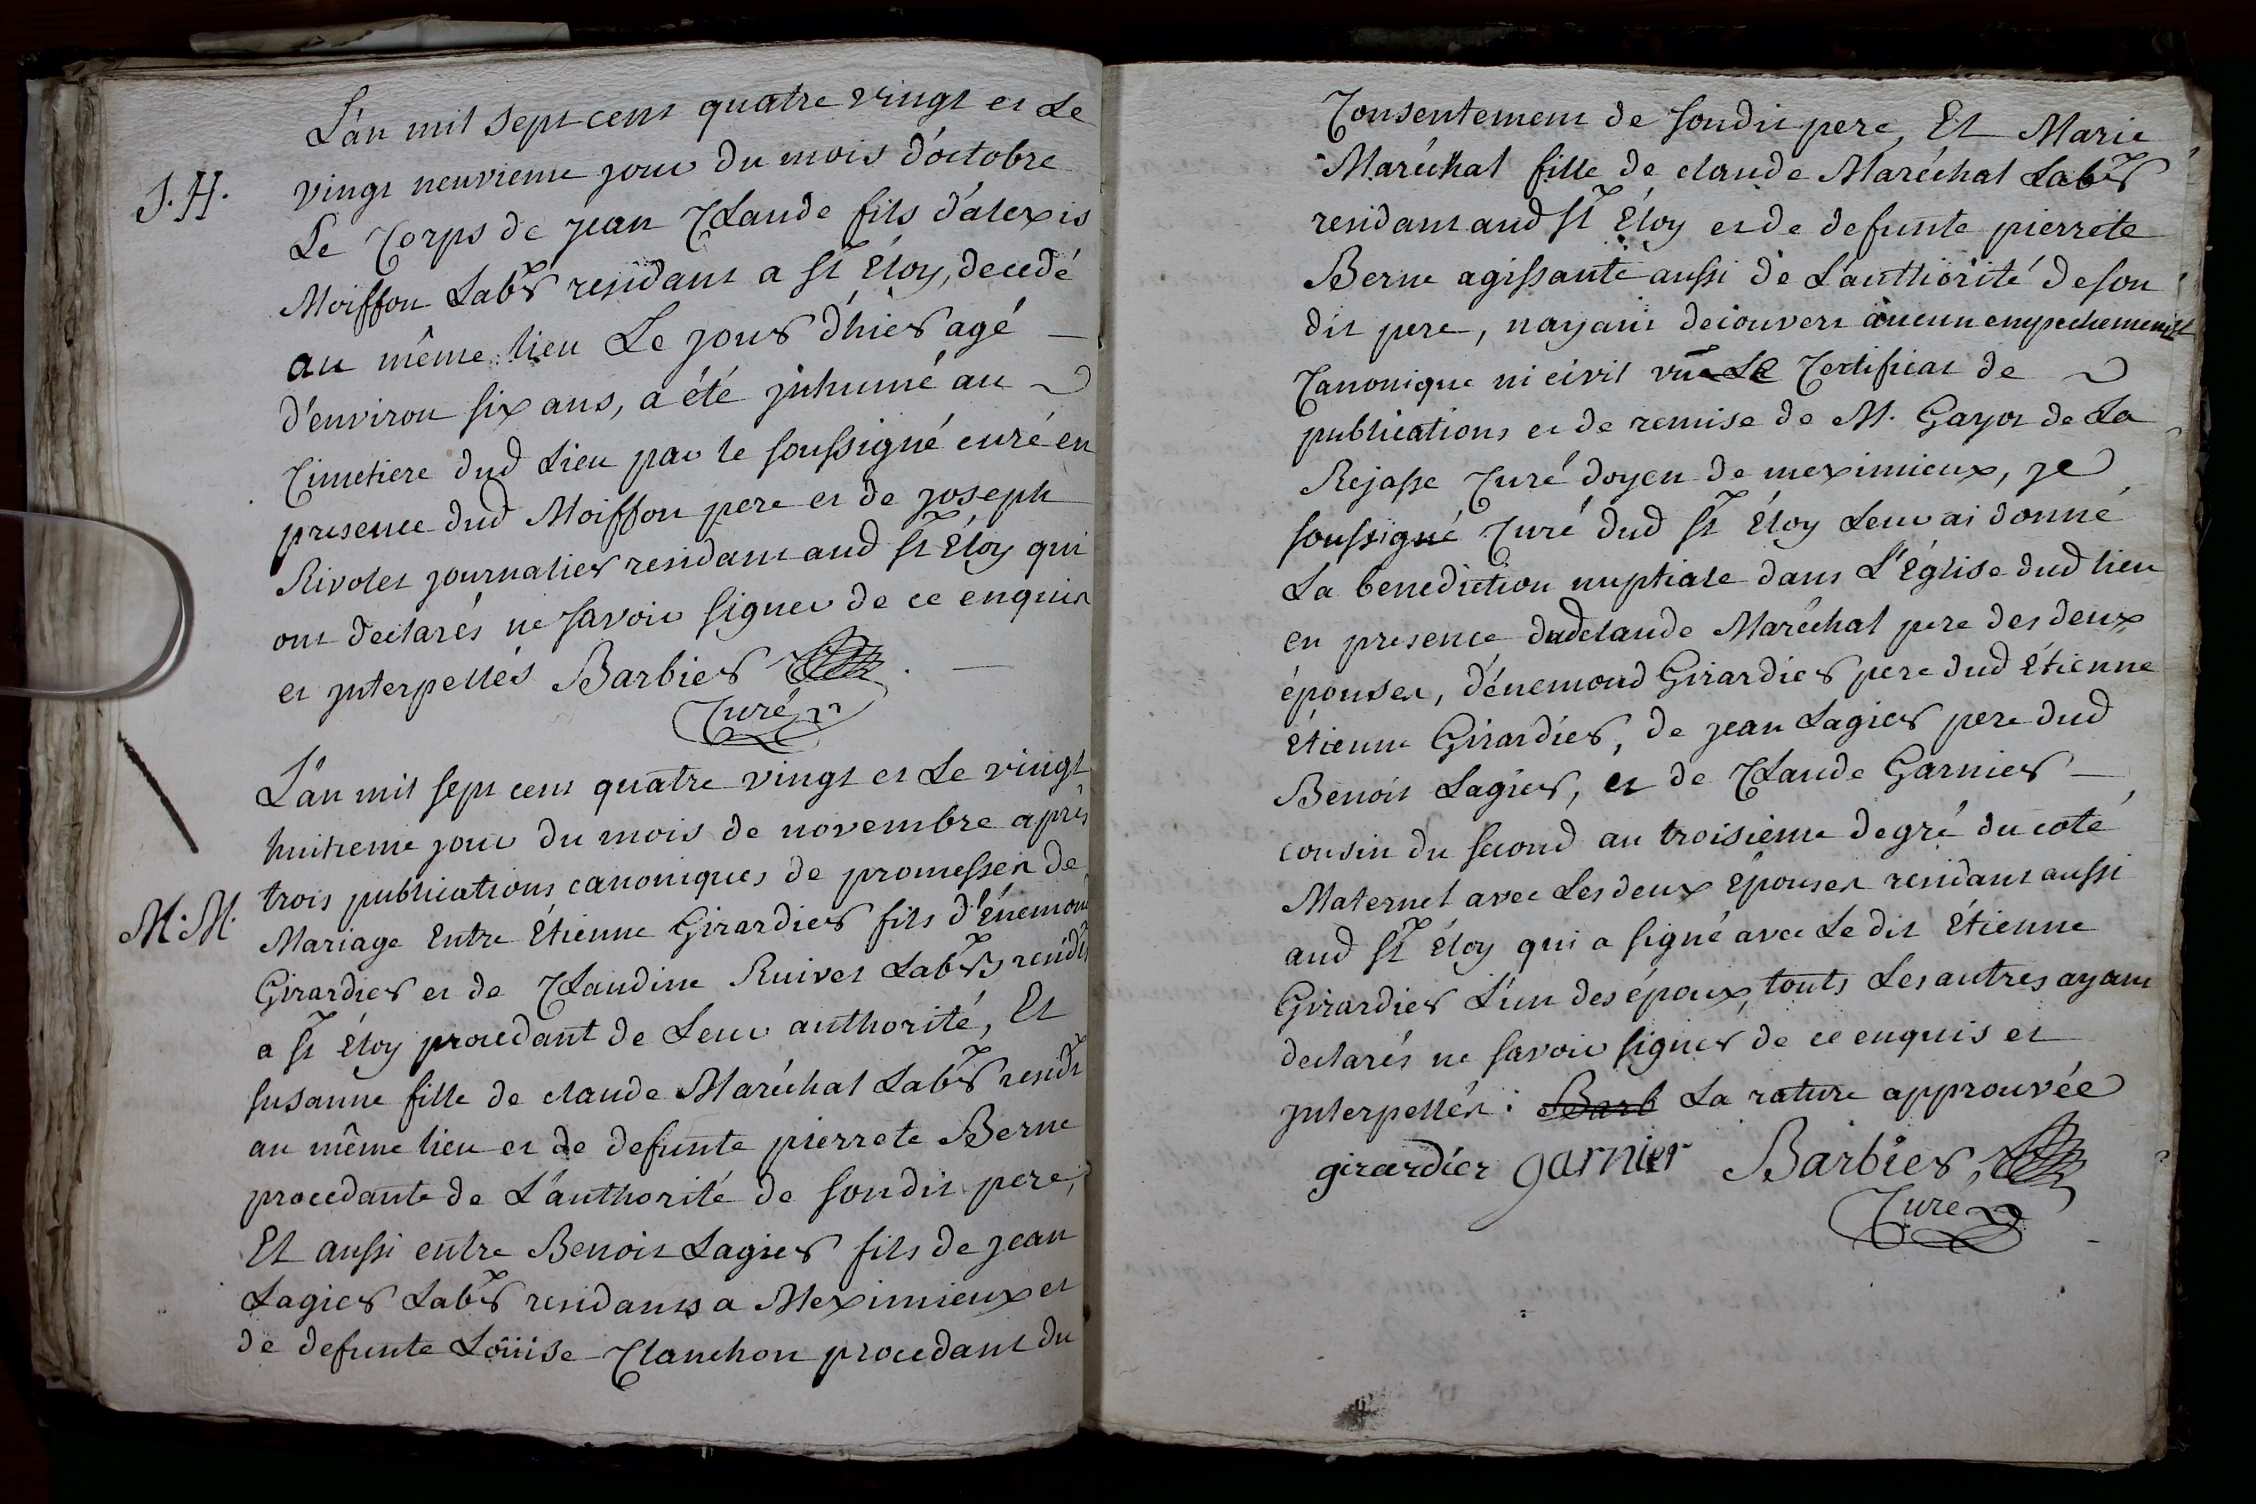 L'an mil sept cent quatre vingt et Le
J.H.
vingt neuvieme jour du mois d'octobre
Le Corps de jean Claude fils d'alexis
Moiffon Labr residant a St Éloy, decedé
au même lieu Le jour d'hier agé
d'environ six ans, a été jnhumé au
Cimetiere dud Lieu par le soussigné curé en
presence dud Moiffon pere et de joseph
Rivolet journalier residant aud St Éloy qui
ont declarés ne savoir signer de ce enquis
et jnterpellés Barbier
Curé
L'an mil sept cent quatre vingt et Le vingt
huitieme jour du mois de novembre après
trois publications canoniques de promesses de
M.M.
Mariage Entre Étienne Girardier fils d'Énemond
Girardier et de Claudine Ruivet Labrs residts
a St Éloy procedant de Leur authorité, Et
susanne fille de claude Maréchal Labr residt
au même lieu et de defunte pierrete Berne
procedante de L'authorité de sondit pere,
Et aussi entre Benoit Lagier fils de jean
Lagier Labr residants a Meximieux et
de defunte Loüise Clanchon procedant du
Consentement de sondit pere, Et Marie
Maréchal fille de claude Maréchal Labr
residant aud St Éloy et de defunte pierrete
Berne agissante aussi de L'authorité de son
dit pere, n'ayant decouvert aucun empechement
Canonique ni civil vu Le Certificat de
publications et de remise de M. Gayot de La
Rejasse Curé doyen de meximieux, je
soussigné Curé dud St Éloy Leur ai donné
La benediction nuptiale dans L'Église dud lieu
en presence dud claude Maréchal pere des deux
épouses, d'énemond Girardier pere dud Étienne
Étienne Girardier, de jean Lagier pere dud
Benoit Lagier, et de Claude Garnier
cousin du second au troisième degré du coté
Maternel avec Les deux Épouses residant aussi
aud St Éloy qui a signé avec Le dit Étienne
Girardier L'un des époux, touts Les autres ayant
declarés ne savoir signer de ce enquis et
jnterpellés : Barb La rature approuvée
girardier garnier Barbier
Curé